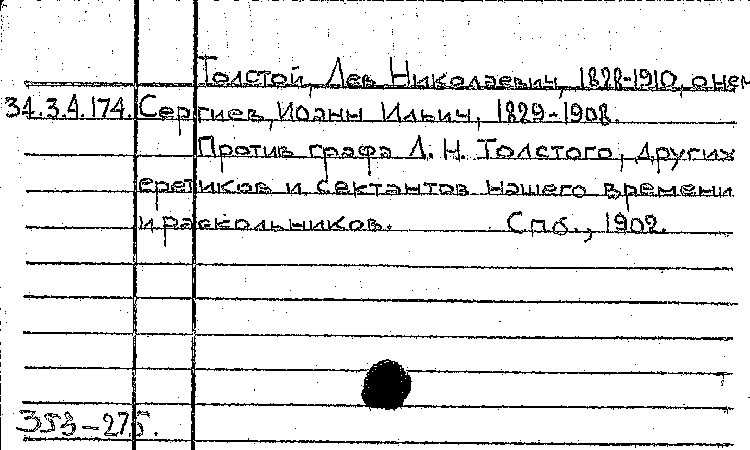 Толстой, Лев Николаевич, 1828-1910, о нем
34.3.4.174. Сергиев, Иоанн Ильич, 1829-1908.
Против графа Л. Н. Толстого, других
еретиков и сектантов нашего времени
и раскольников. Спб., 1902.
353-275.